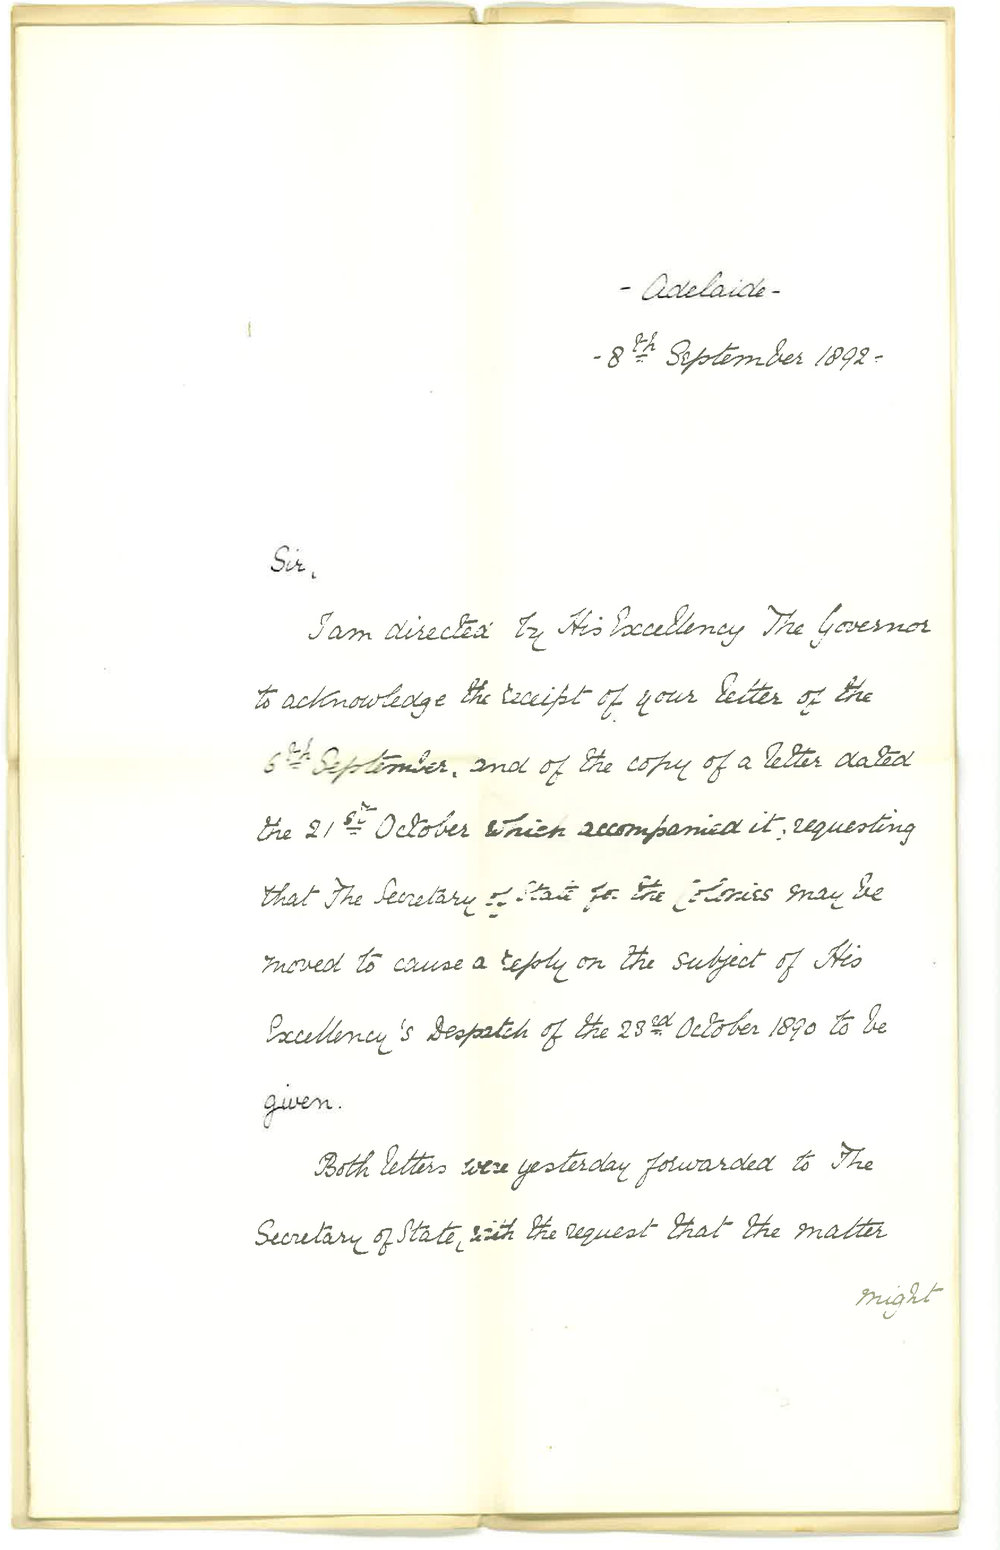 - Adelaide -
- 8th September 1892 -
Sir,
I am directed by His Excellency The Governor
to acknowledge the receipt of your letter of the
6th September, and of the copy of a letter dated
the 21st October which accompanied it, requesting
that The Secretary of State for the Colonies may be
moved to cause a reply on the subject of His
Excellency's Despatch of the 23rd October 1890 to be
given.
Both letters were yesterday forwarded to The
Secretary of State, with the request that the matter
might